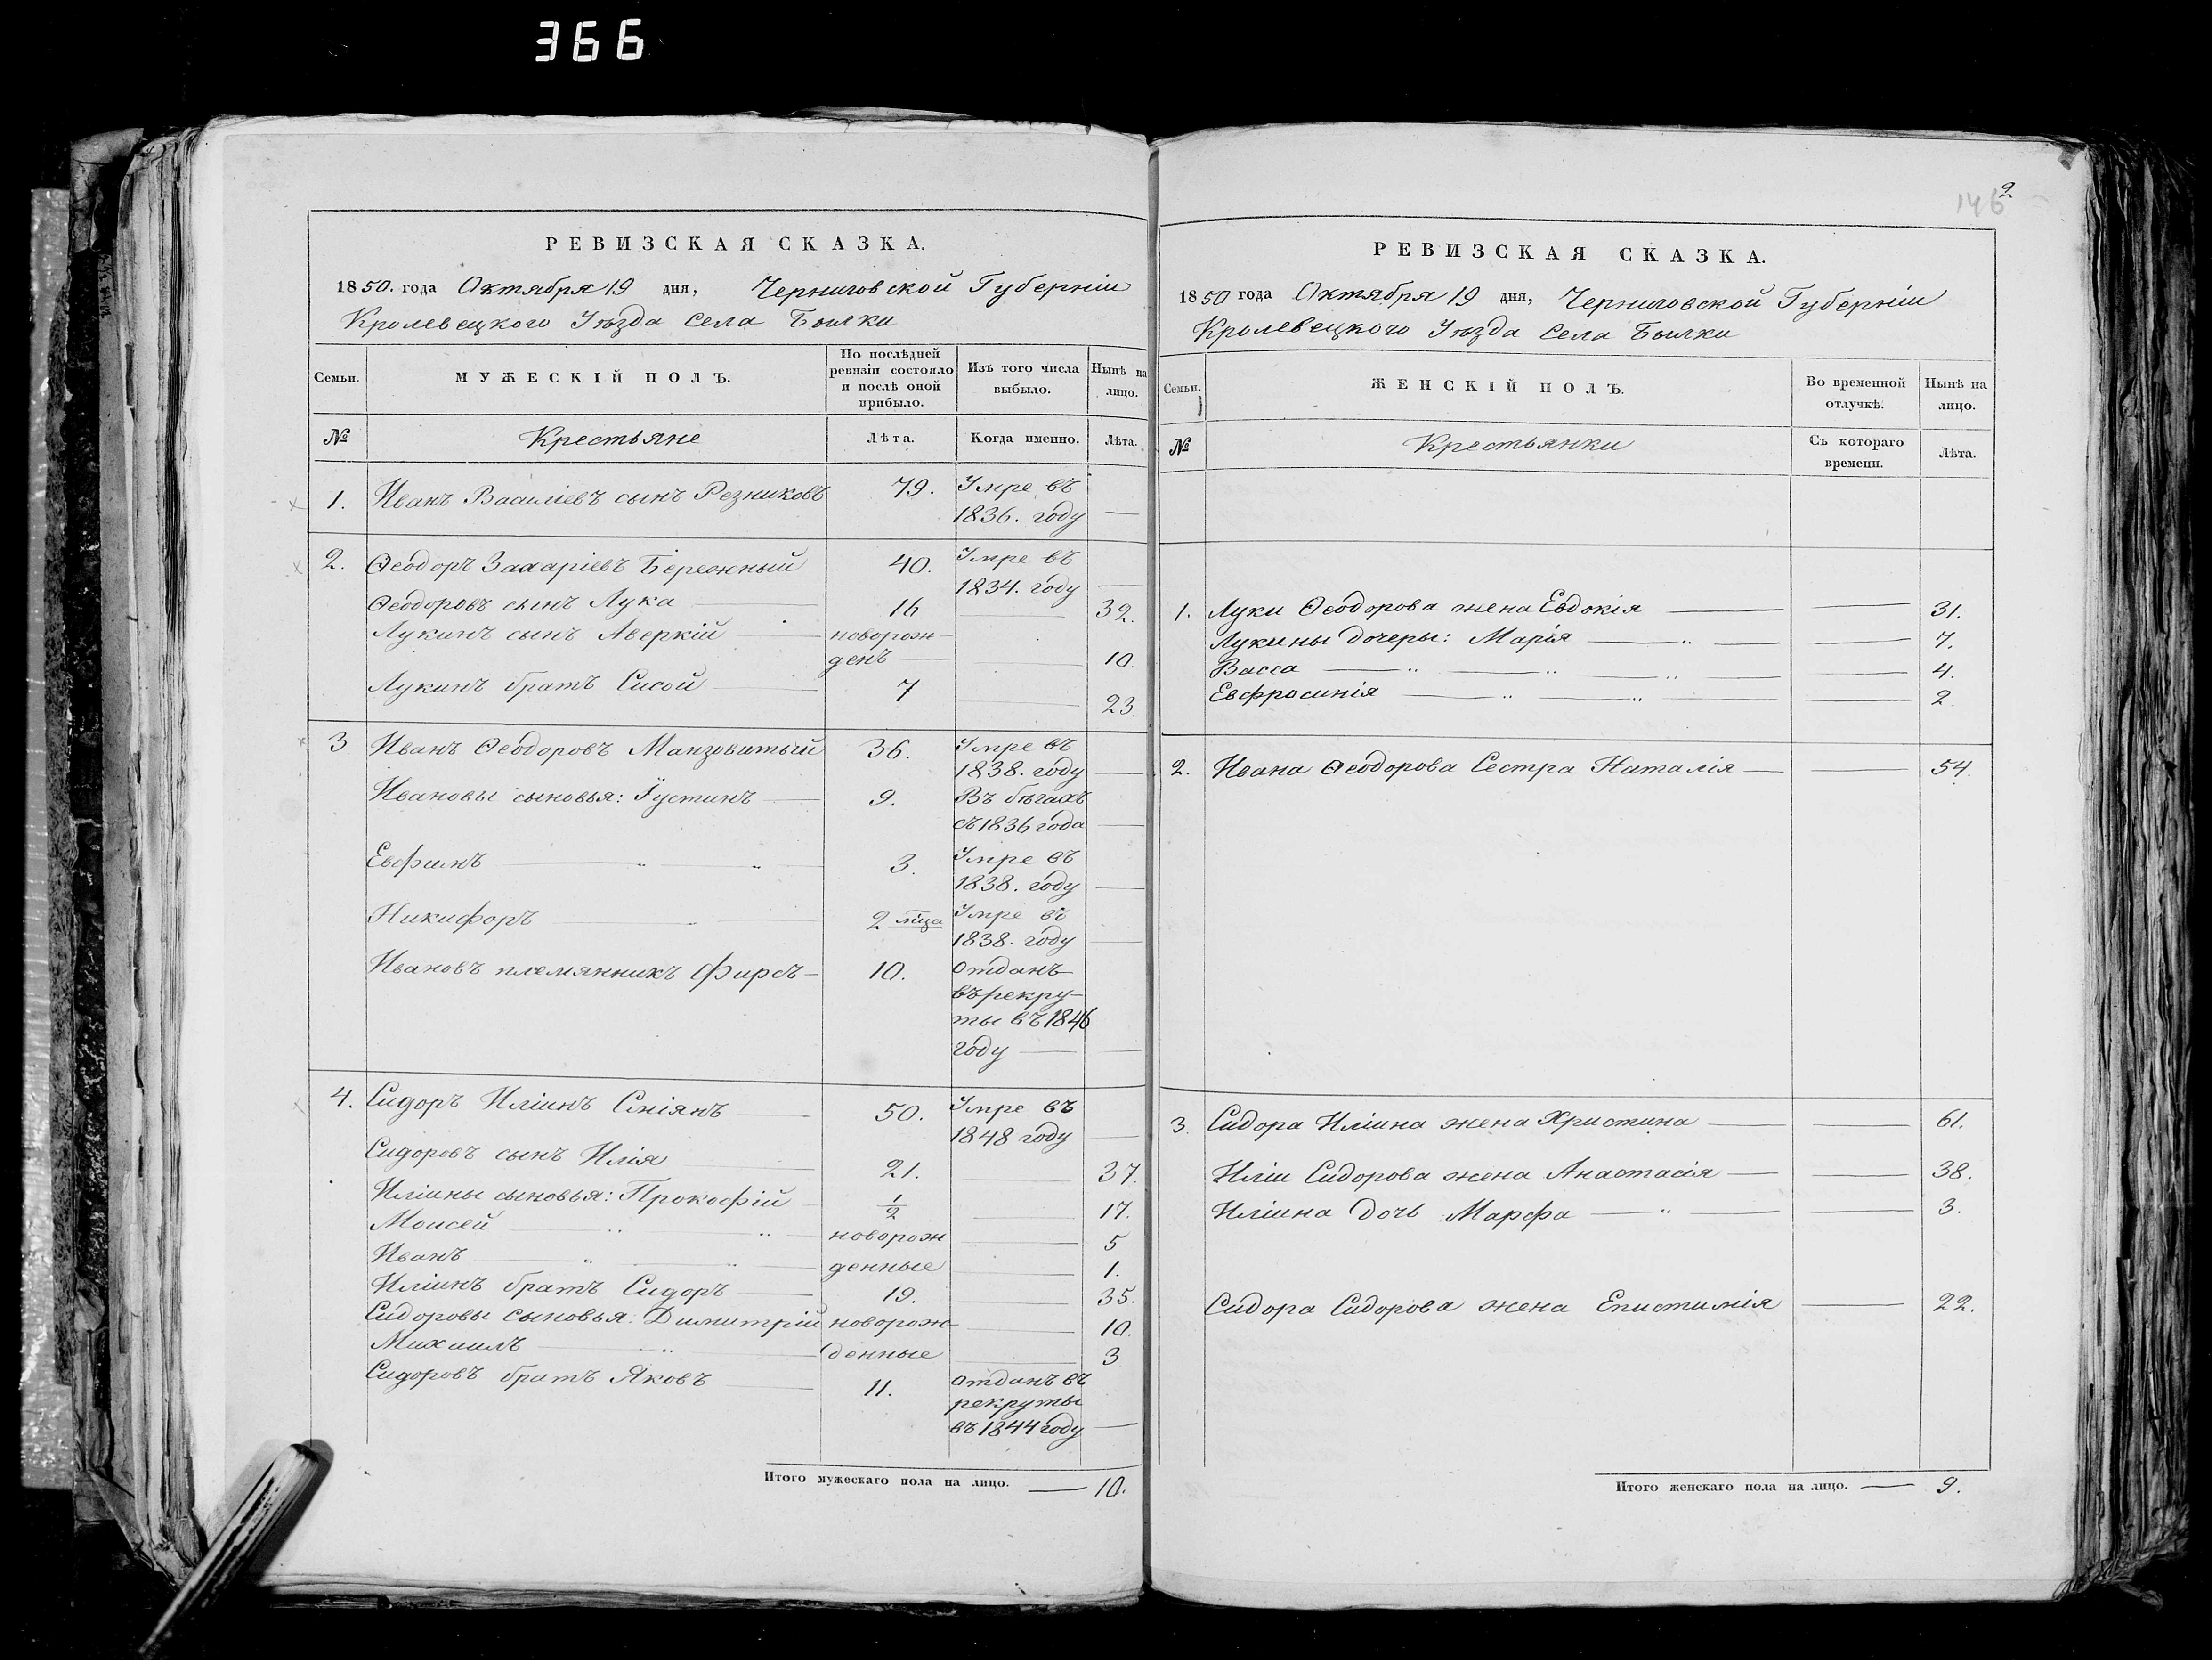 366
РЕВИЗСКАЯ СКАЗКА.
1850. года Октября 19 дня, Черниговской Губерніи
Кролевецкого Уѣзда села Былки
Семьи.
МУЖЕСКІЙ ПОЛЪ.
По послѣдней ревизіи состояло и послѣ оной прибыло.
Изъ того числа выбыло.
Нынѣ на лицо.
№
Крестьяне
Лѣта.
Когда именно.
Лѣта.
1. Иванъ Василіевъ сынъ Резниковъ 79. Умре въ
1836. году —
2. Ѳеодоръ Захаріевъ Бережный 40. Умре въ
1834. году —
Ѳеодоровъ сынъ Лука — 16 — 32.
Лукинъ сынъ Аверкій — новорож-
денъ — 10.
Лукинъ братъ Сисой — 7 — 23.
3 Иванъ Ѳеодоровъ 36. Умре въ
1838. году —
Ивановы сыновья: Іустинъ — 9. Въ бѣгахъ
съ 1836 года —
Евфимъ — " " 3. Умре въ
1838. году —
Никифоръ — " 2 мца Умре въ
1838. году —
Ивановъ племянникъ Фирсъ — 10. отданъ
въ рекру-
ты въ 1846
году —
4. Сидоръ Иліинъ 50. Умре въ
1848 году —
Сидоровъ сынъ Илія — 21. — 37.
Иліины сыновья: Прокофій 1/2 — 17.
Моисей " " новорож — 5
Иванъ " " денные — 1.
Иліинъ братъ Сидоръ — 19. — 35.
Сидоровы сыновья: Димитрій новорож- — 10.
Михаилъ — " денные — 3
Сидоровъ братъ Яковъ — 11. отданъ въ
рекруты
въ 1844 году —
Итого мужескаго пола на лицо. — 10.
146
2
РЕВИЗСКАЯ СКАЗКА.
1850 года Октября 19 дня, Черниговской Губерніи
Кролевецкого Уѣзда села Былки
Семьи.
ЖЕНСКІЙ ПОЛЪ.
Во временной отлучкѣ.
Нынѣ на лицо.
№
Крестьянки
Съ котораго времени.
Лѣта.
1. Луки Ѳеодорова жена Евдокія — — 31.
Лукины дочеры: Марія — " — — 7.
Васса — " — " — " — — 4.
Евфросинія — " — " — — 2
2. Ивана Ѳеодорова Сестра Наталія — — 54.
3. Сидора Иліина жена Христина — — 61.
Иліи Сидорова жена Анастасія — — 38.
Иліина дочь Марфа — " — — 3.
Сидора Сидорова жена Епистимія — 22.
Итого женскаго пола на лицо. — 9.